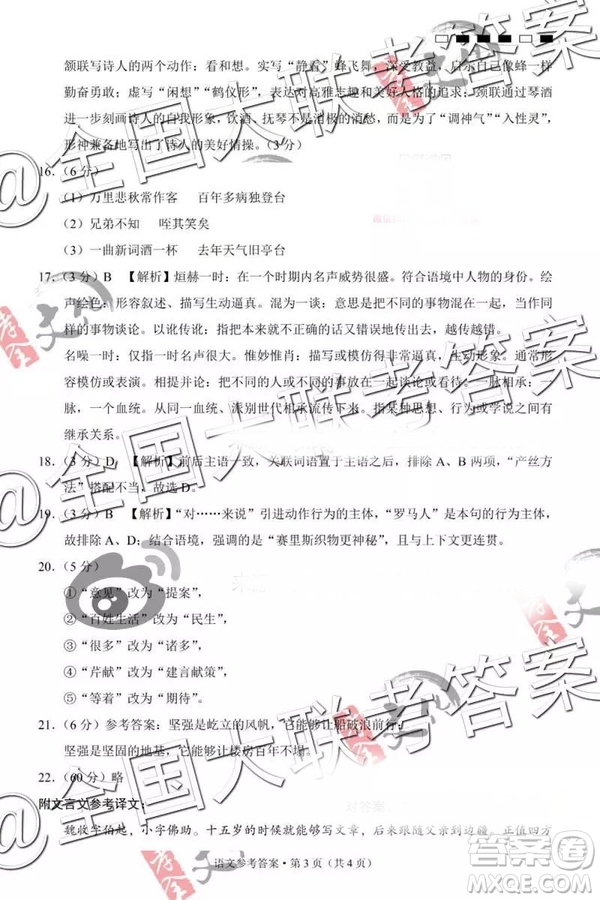 颔联写诗人的两个动作：看和想。实写“静看”蜂飞舞，深受教益，启示自己像蜂一样
勤奋勇敢；虚写“闲想”“鹤仪形”，表达对高雅志趣和美好人格的追求；颈联通过琴酒
进一步刻画诗人的自我形象，饮酒、抚琴不只是为了“调神气”“入性灵”，
形神兼备地写出了诗人的美好情操。（3分）
16．（6分）
（1）万里悲秋常作客　百年多病独登台
（2）兄弟不知　咥其笑矣
（3）一曲新词酒一杯　去年天气旧亭台
17．（3分）B　【解析】烜赫一时：在一个时期内名声威势很盛。符合语境中人物的身份。绘
声绘色：形容叙述、描写生动逼真。混为一谈：意思是把不同的事物混在一起，当成同
样的事物谈论。以讹传讹：指把本来就不正确的话又错误地传出去，越传越错。
名噪一时：仅指一时名声很大。惟妙惟肖：描写或模仿得非常逼真，生动形象。通常形
容模仿或表演。相提并论：把不同的人或事物放在一起谈论或看待。一脉相承：一
脉，一个血统。从同一血统、派别世代相承流传下来。指某种思想、行为或学说之间有
继承关系。
18．（3分）D　【解析】前后主语一致，关联词语置于主语之后，排除A、B两项，“产丝方
法”搭配不当，故选D。
19．（3分）B　【解析】“对……来说”引进动作行为的主体，“罗马人”是本句的行为主体，
故排除A、D；结合语境，强调的是“赛里斯织物更神秘”，且与上下文更连贯。
20．（5分）
①“意见”改为“提案”。
②“百姓生活”改为“民生”。
③“很多”改为“诸多”。
④“芹献”改为“建言献策”。
⑤“等着”改为“期待”。
21．（6分）参考答案：坚强是屹立的风帆，它能够让船破浪前行；
坚强是坚固的地基，它能够让楼房百年不塌。
22．（60分）略
附文言文参考译文：
魏收字伯起，小字佛助。十五岁的时候就能够写文章，后来跟随父亲到边疆。正值四方
语文参考答案·第3页（共4页）
@全国大联考答案
@全国大联考答案
@全国大联考答案
@全国大联考答案
答案圈
MXQE.COM